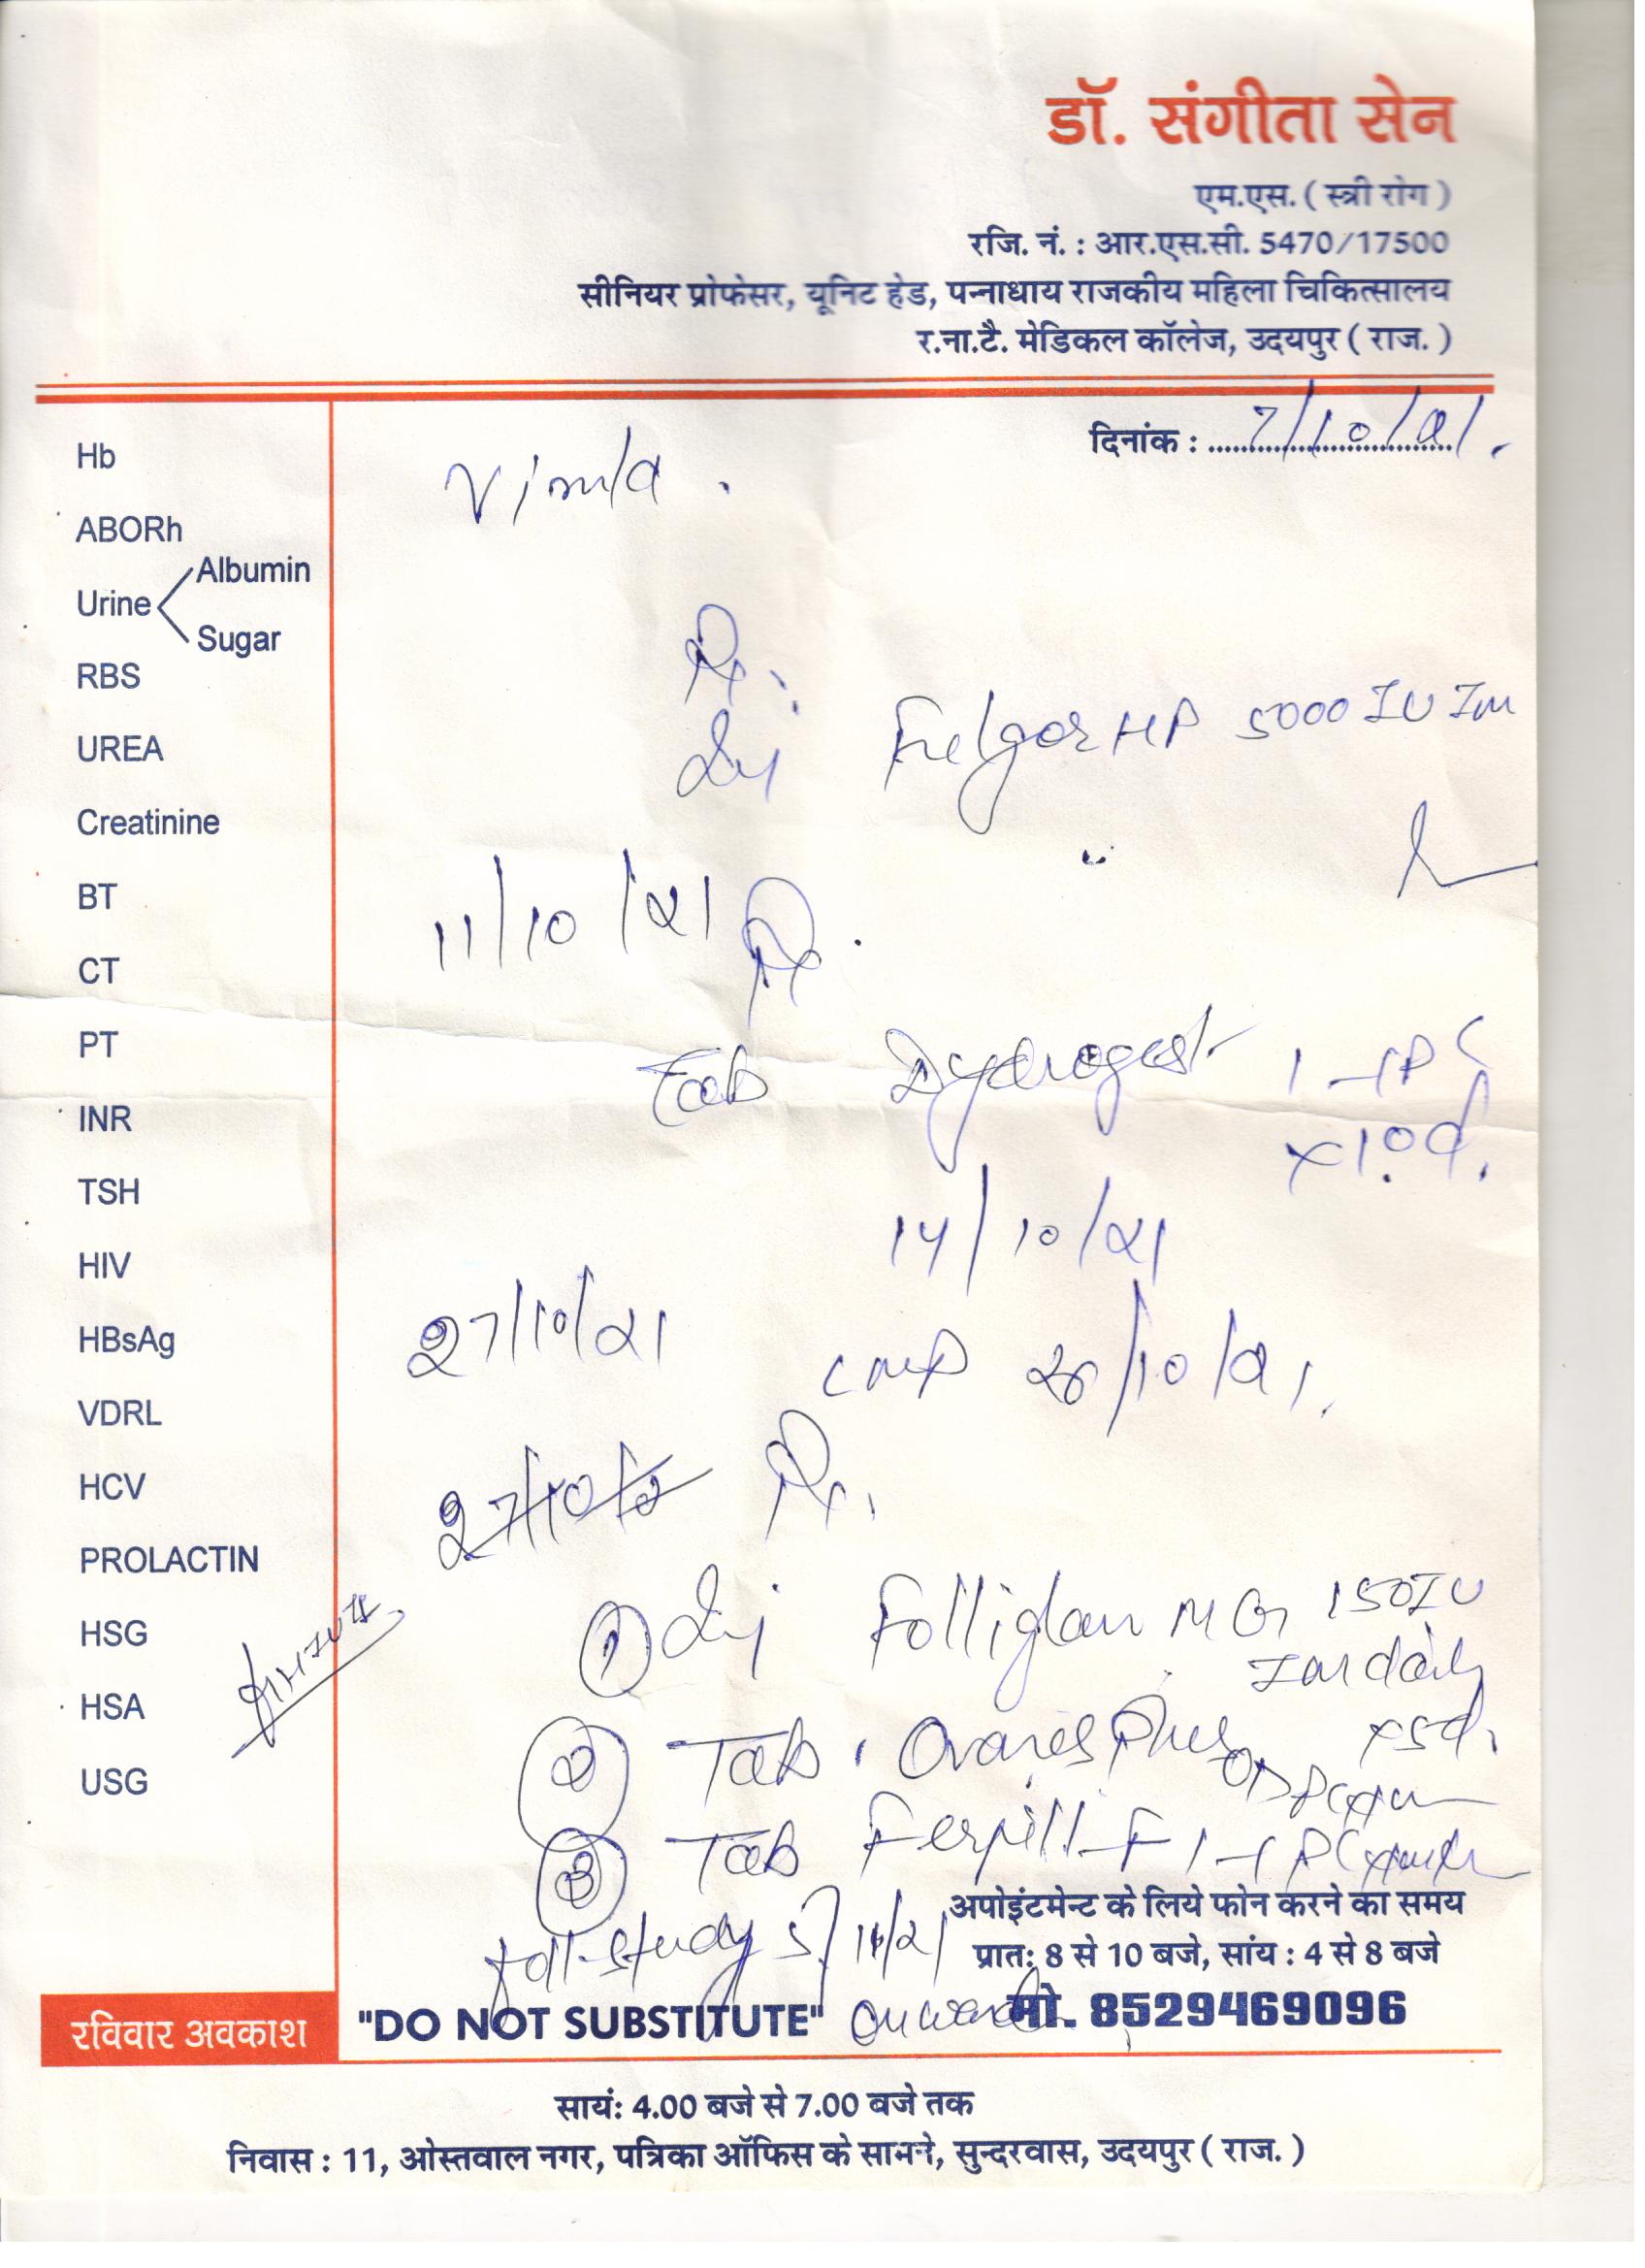 डॉ. संगीता सेन
एम.एस. ( स्त्री रोग )
रजि. नं. : आर.एस.सी. 5470/17500
सीनियर प्रोफेसर, यूनिट हेड, पन्नाधाय राजकीय महिला चिकित्सालय
र.ना.टै. मेडिकल कॉलेज, उदयपुर ( राज. )
दिनांक : 7/10/21.
Hb
ABORh
Urine
Albumin
Sugar
RBS
UREA
Creatinine
BT
CT
PT
INR
TSH
HIV
HBsAg
VDRL
HCV
PROLACTIN
HSG
HSA
USG
Vimla.
Rx.
Inj HP 5000 IU IM
11/10/21 Rx.
Tab Dydrogest 1-1 PC
x10d.
14/10/21
27/10/21 LMP 26/10/21.
Rx.
① Inj Folliglan MG 150IU
IM daily
x5d.
② Tab. Ovares Plus OD PC
③ Tab Ferpill-F 1-1 PC
Foll-study 5/11/21
onwards
अपोइंटमेन्ट के लिये फोन करने का समय
प्रात: 8 से 10 बजे, सांय : 4 से 8 बजे
मो. 8529469096
रविवार अवकाश
"DO NOT SUBSTITUTE"
सायं: 4.00 बजे से 7.00 बजे तक
निवास : 11, ओस्तवाल नगर, पत्रिका ऑफिस के सामने, सुन्दरवास, उदयपुर ( राज. )